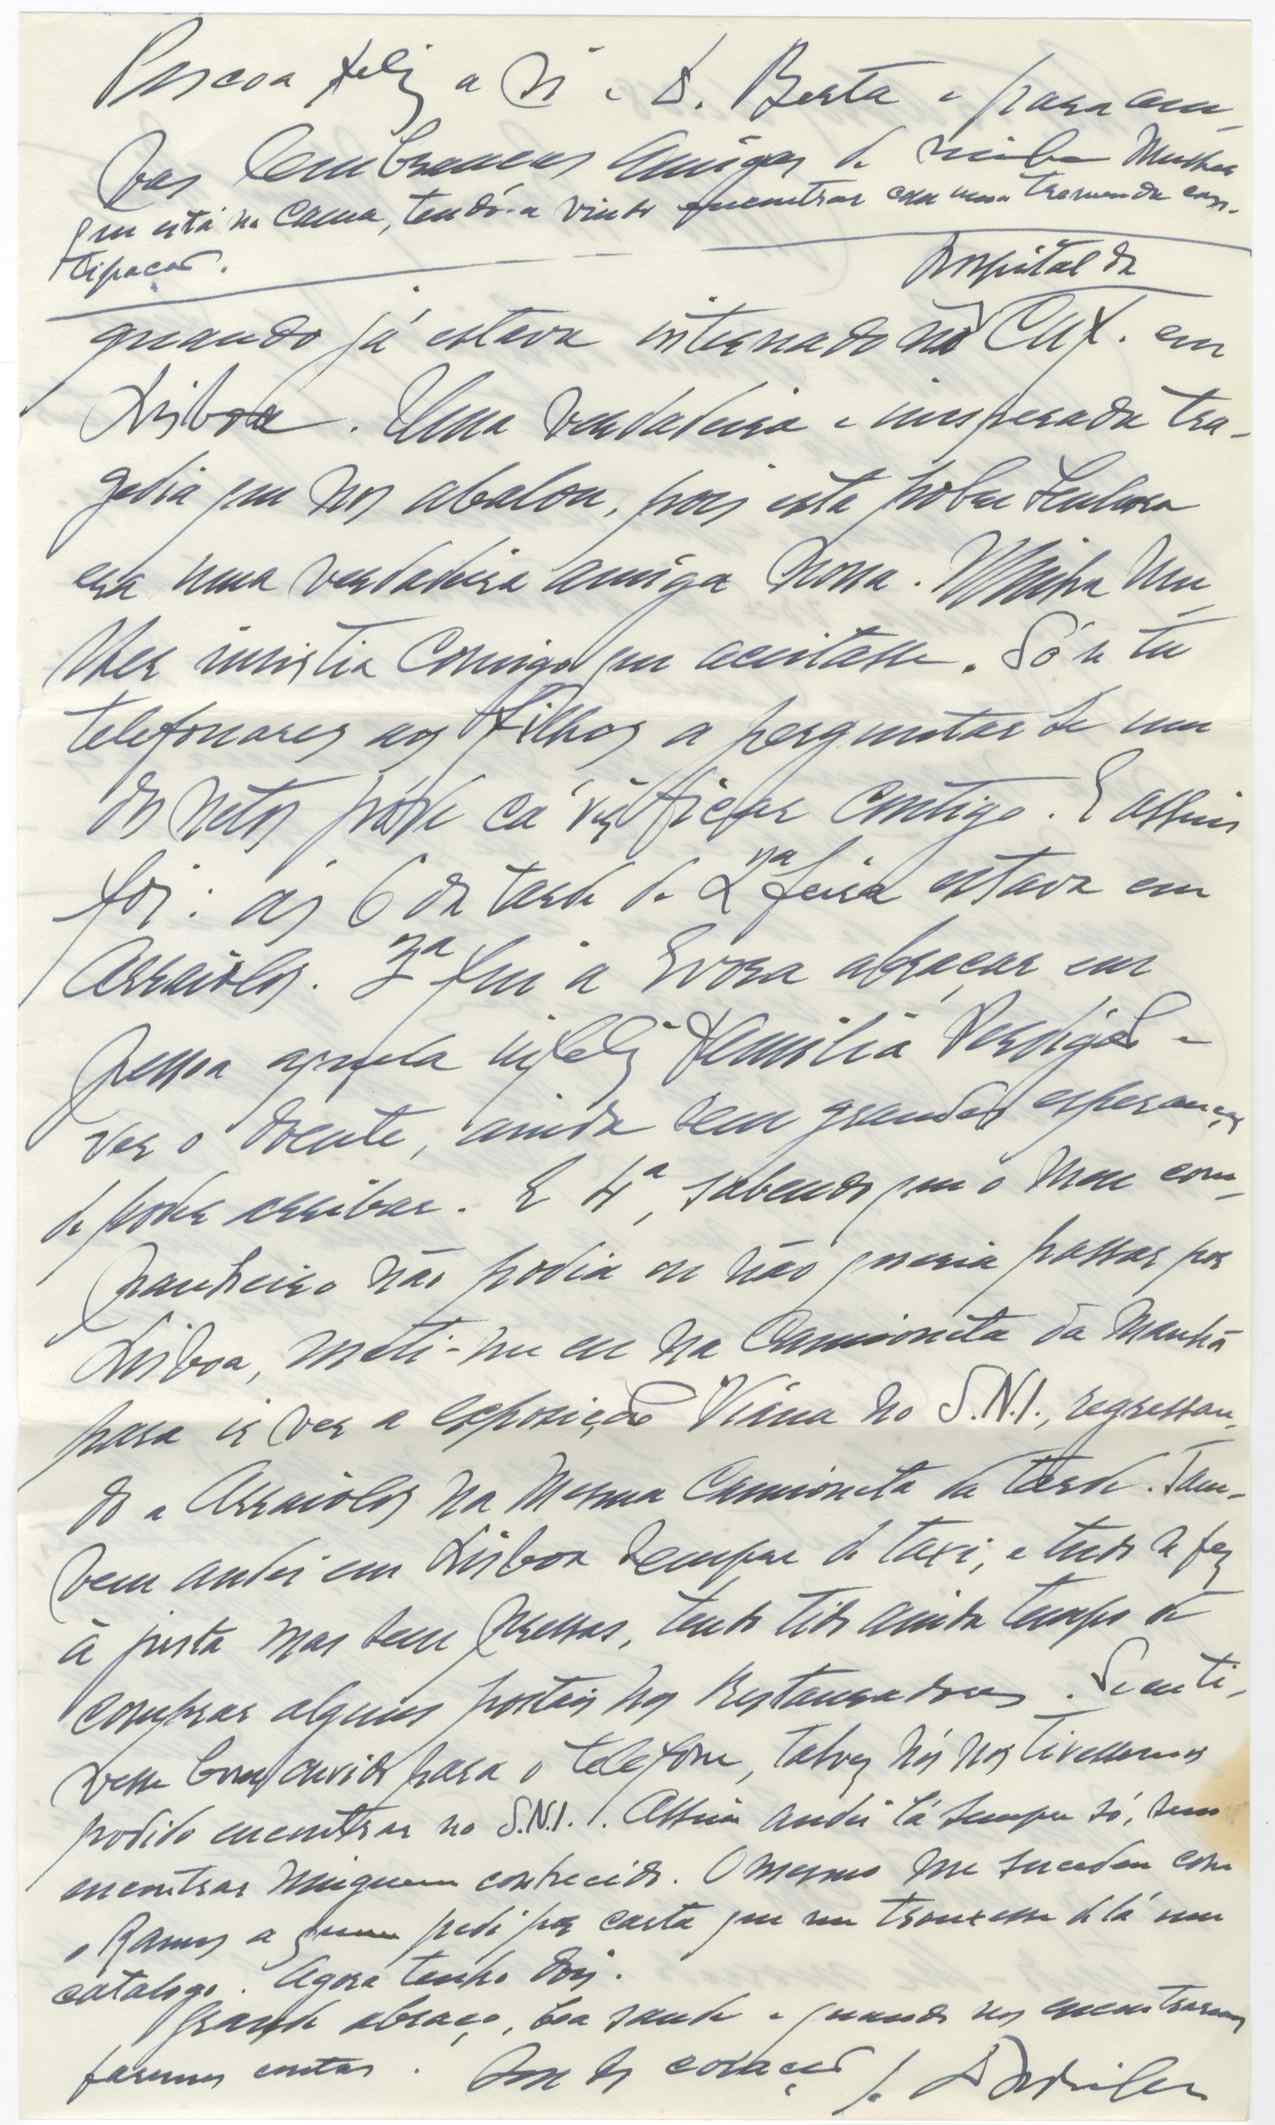 Pascoa feliz a si e D. Berta e para am-
bas lembranças amigas de minha Mulher
que está na cama, tendo-a vindo encontrar com uma tremenda cons-
tipação.
Hospital da
quando já estava internado na CUF. em
Lisboa. Uma verdadeira e inesperada tra-
gedia que nos abalou, pois esta pobre Senhora
era uma verdadeira amiga nossa. Minha Mu-
lher insistia comigo que aceitasse. Só se tu
telefonares aos filhos a perguntar se um
dos netos pode cá vir ficar contigo. E assim
foi: às 6 da tarde de 2ª feira estava em
Arraiolos. 3ª fui a Evora abraçar em
pessoa aquela infeliz Familia Perdigão e
ver o doente, ainda sem grandes esperanças
de poder arribar. E 4ª, sabendo que o meu com-
panheiro não podia ou não queria passar por
Lisboa, meti-me eu na Camioneta da Manhã
para ir ver a exposição Viana no S.N.I., regressan-
do a Arraiolos na mesma Camioneta da tarde. Tam-
bem andei em Lisboa sempre de taxi, e tudo se fez
à justa mas sem pressas, tendo tido ainda tempo de
comprar alguns postais nos Restauradores. Se eu ti-
vesse bom ouvido para o telefone, talvez nós nos tivessemos
podido encontrar no S.N.I.. Assim andei lá sempre só, sem
encontrar ninguem conhecido. O mesmo me sucedeu com
o Ramos a quem pedi por carta que me trouxesse de lá um
catalogo. Agora tenho dois.
Grande abraço, boa saude e quando nos encontrarmos
faremos contas.